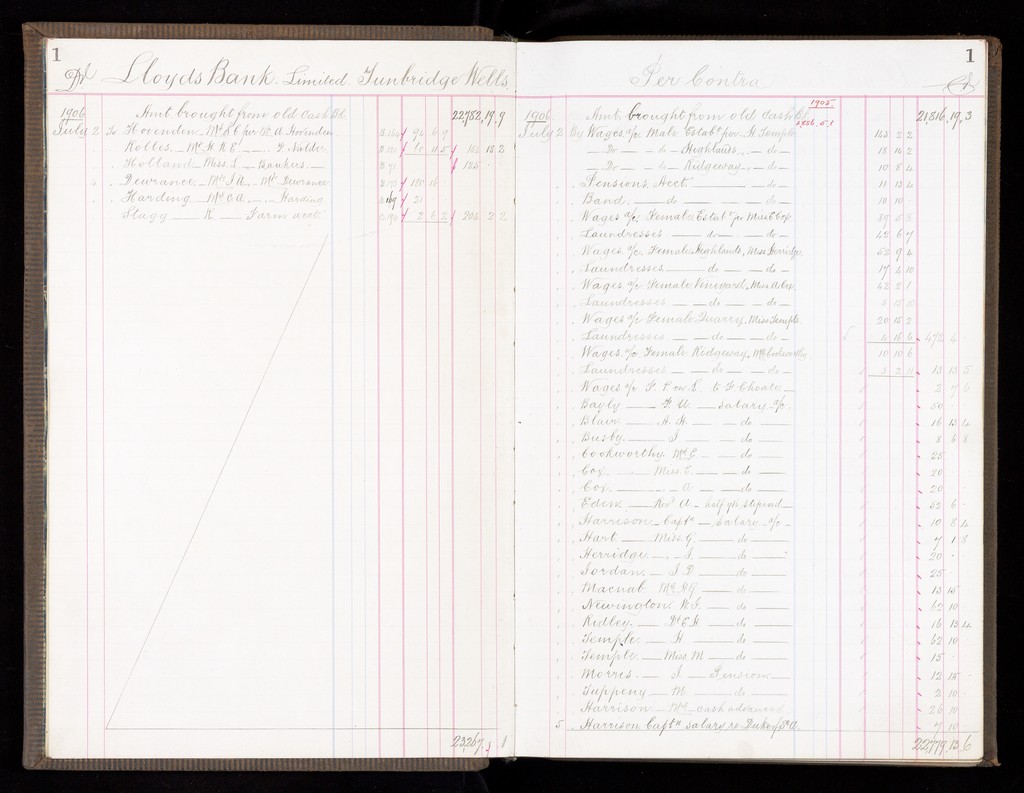 1
Dr Lloyds Bank. Limited Tunbridge Wells.
1906 Amt brought from old Cash Bk. 22,782 19 9
July 2 To Hovenden Mr R C per R. A. Hovenden 92 6 9
Robbs. Mr H R E. D. Nalder 163 18 2
Holland Miss L Bankers 125
Dewrance Mrs J A. Mr Dewrance
Harding Mr O A. Harding 21
Stagg K Farm acct 2 6 2 205 2 2
23,267 1
1
Per Contra Cr
1905
2,286. 5. 1
1906 Amt brought from old Cash Bk. 21,816 19 3
July 2 By Wages a/c Male Estabt per H. Temple 163 2 2
Do do Highlands do 18 14 2
Do do Ridgeway do 10 8 4
Pensions Acct do 11 13 4
Band do do 10 10
Wages a/c Female Estabt per Miss E Cox 89 5 8
Laundresses do do 42 6 7
Wages a/c Female Highlands, Miss Herridge 52 9 4
Laundresses do do 17 4 10
Wages a/c Female Vineyard, Miss A Cox 42 2 1
Laundresses do do 5 15 8
Wages a/c Female Quarry, Miss Temple 20 15 2
Laundresses do do 4 16 6 472 4
Wages a/c Female Ridgeway, Mrs Cookworthy 10 10 6
Laundresses do do 3 2 11 13 13 5
Wages a/c to F. Choate 2 7 6
Bayly F. U. salary a/c 50
Blair A. H. do 16 13 4
Busby J do 8 6 8
Cookworthy Mrs E do 25
Cox Miss E. do 20
Cox A do 20
Eden Revd A half yr stipend 52 6
Harrison Captn salary a/c 10 8 4
Hart Miss G. do 7 1 8
Herridge J. do 20
Jordan J D do 25
Macnab Mr A G do 13 15
Newington H. F. do 62 10
Ridley Dr E H do 16 13 4
Temple H do 62 10
Temple Miss M do 15
Morris J Pension 12 15
Tuppeny M. do 2 10
Harrison Mr cash advanced 26 10
5 Harrison Captn salary re Duke of St A. 7 10
22,779 13 6